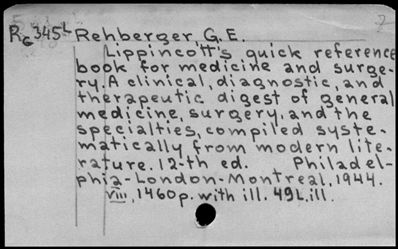 RG345L Rehberger, G.E.
Lippincott's quick reference
book for medicine and surge-
ry. A clinical, diagnostic, and
therapeutic digest of general
medicine, surgery, and the
specialties, compiled syste-
matically from modern lite-
rature. 12-th ed. Philadel-
phia-London-Montreal, 1944.
viii, 1460p. with ill. 49L.ill.